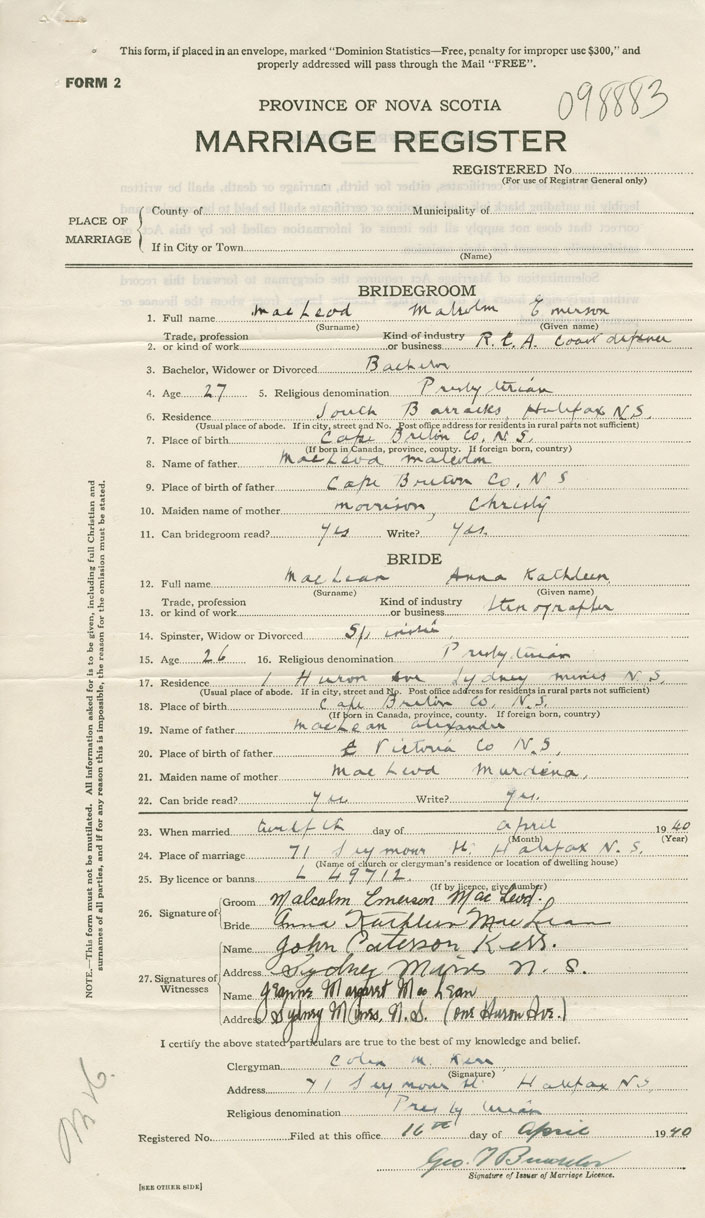 This form, if placed in an envelope, marked “Dominion Statistics—Free, penalty for improper use $300,” and
properly addressed will pass through the Mail “FREE”.
FORM 2
098883
PROVINCE OF NOVA SCOTIA
MARRIAGE REGISTER
REGISTERED No.
(For use of Registrar General only)
PLACE OF MARRIAGE
County of Municipality of
If in City or Town
(Name)
BRIDEGROOM
1. Full name MacLeod Malcolm Emerson
(Surname) (Given name)
2. Trade, profession or kind of work Kind of industry or business R.C.A. Coast defence
3. Bachelor, Widower or Divorced Bachelor
4. Age 27 5. Religious denomination Presbyterian
6. Residence South Barracks, Halifax N.S.
(Usual place of abode. If in city, street and No. Post office address for residents in rural parts not sufficient)
7. Place of birth Cape Breton Co, N.S.
(If born in Canada, province, county. If foreign born, country)
8. Name of father MacLeod Malcolm
9. Place of birth of father Cape Breton Co, N S
10. Maiden name of mother Morrison, Christy
11. Can bridegroom read? Yes Write? Yes.
BRIDE
12. Full name MacLean Anna Kathleen
(Surname) (Given name)
13. Trade, profession or kind of work Kind of industry or business Stenographer
14. Spinster, Widow or Divorced Spinster
15. Age 26 16. Religious denomination Presbyterian
17. Residence 1 Huron Ave Sydney Mines N.S.
(Usual place of abode. If in city, street and No. Post office address for residents in rural parts not sufficient)
18. Place of birth Cape Breton Co, N.S.
(If born in Canada, province, county. If foreign born, country)
19. Name of father MacLean Alexander
20. Place of birth of father Victoria Co N.S,
21. Maiden name of mother MacLeod Murdena,
22. Can bride read? Yes Write? Yes.
23. When married twelfth day of April 1940
(Month) (Year)
24. Place of marriage 71 Seymour St. Halifax N.S.
(Name of church or clergyman's residence or location of dwelling house)
25. By licence or banns L 49712.
(If by licence, give number)
26. Signature of Groom Malcolm Emerson MacLeod.
Bride Anna Kathleen MacLean
27. Signatures of Witnesses
Name John Paterson Kerr.
Address Sydney Mines N. S.
Name Jeanne Margaret MacLean
Address Sydney Mines, N.S. (one Huron Ave.)
I certify the above stated particulars are true to the best of my knowledge and belief.
Clergyman Colin M. Kerr
(Signature)
Address 71 Seymour St. Halifax N S,
Religious denomination Presbyterian
Registered No. Filed at this office 16th day of April 1940
Geo.
Signature of Issuer of Marriage Licence.
[SEE OTHER SIDE]
NOTE.—This form must not be mutilated. All information asked for is to be given, including full Christian and
surnames of all parties, and if for any reason this is impossible, the reason for the omission must be stated.